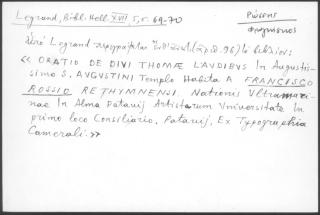 Legrand, Bibl. Hell. XVII, 5, σ. 69-70
Ρώσσος
Φραγκίσκος
Legrand
« ORATIO DE DIVI THOMÆ LAUDIBUS In Augustis-
simo S. AUGUSTINI Templo Habita A FRANCISCO
ROSSIO RETHYMNENSI. Nationis Ultramari-
nae In Alma Patavij Artistarum Universitate In
primo loco Consiliario. Patavij, Ex Typographia
Camerali.»